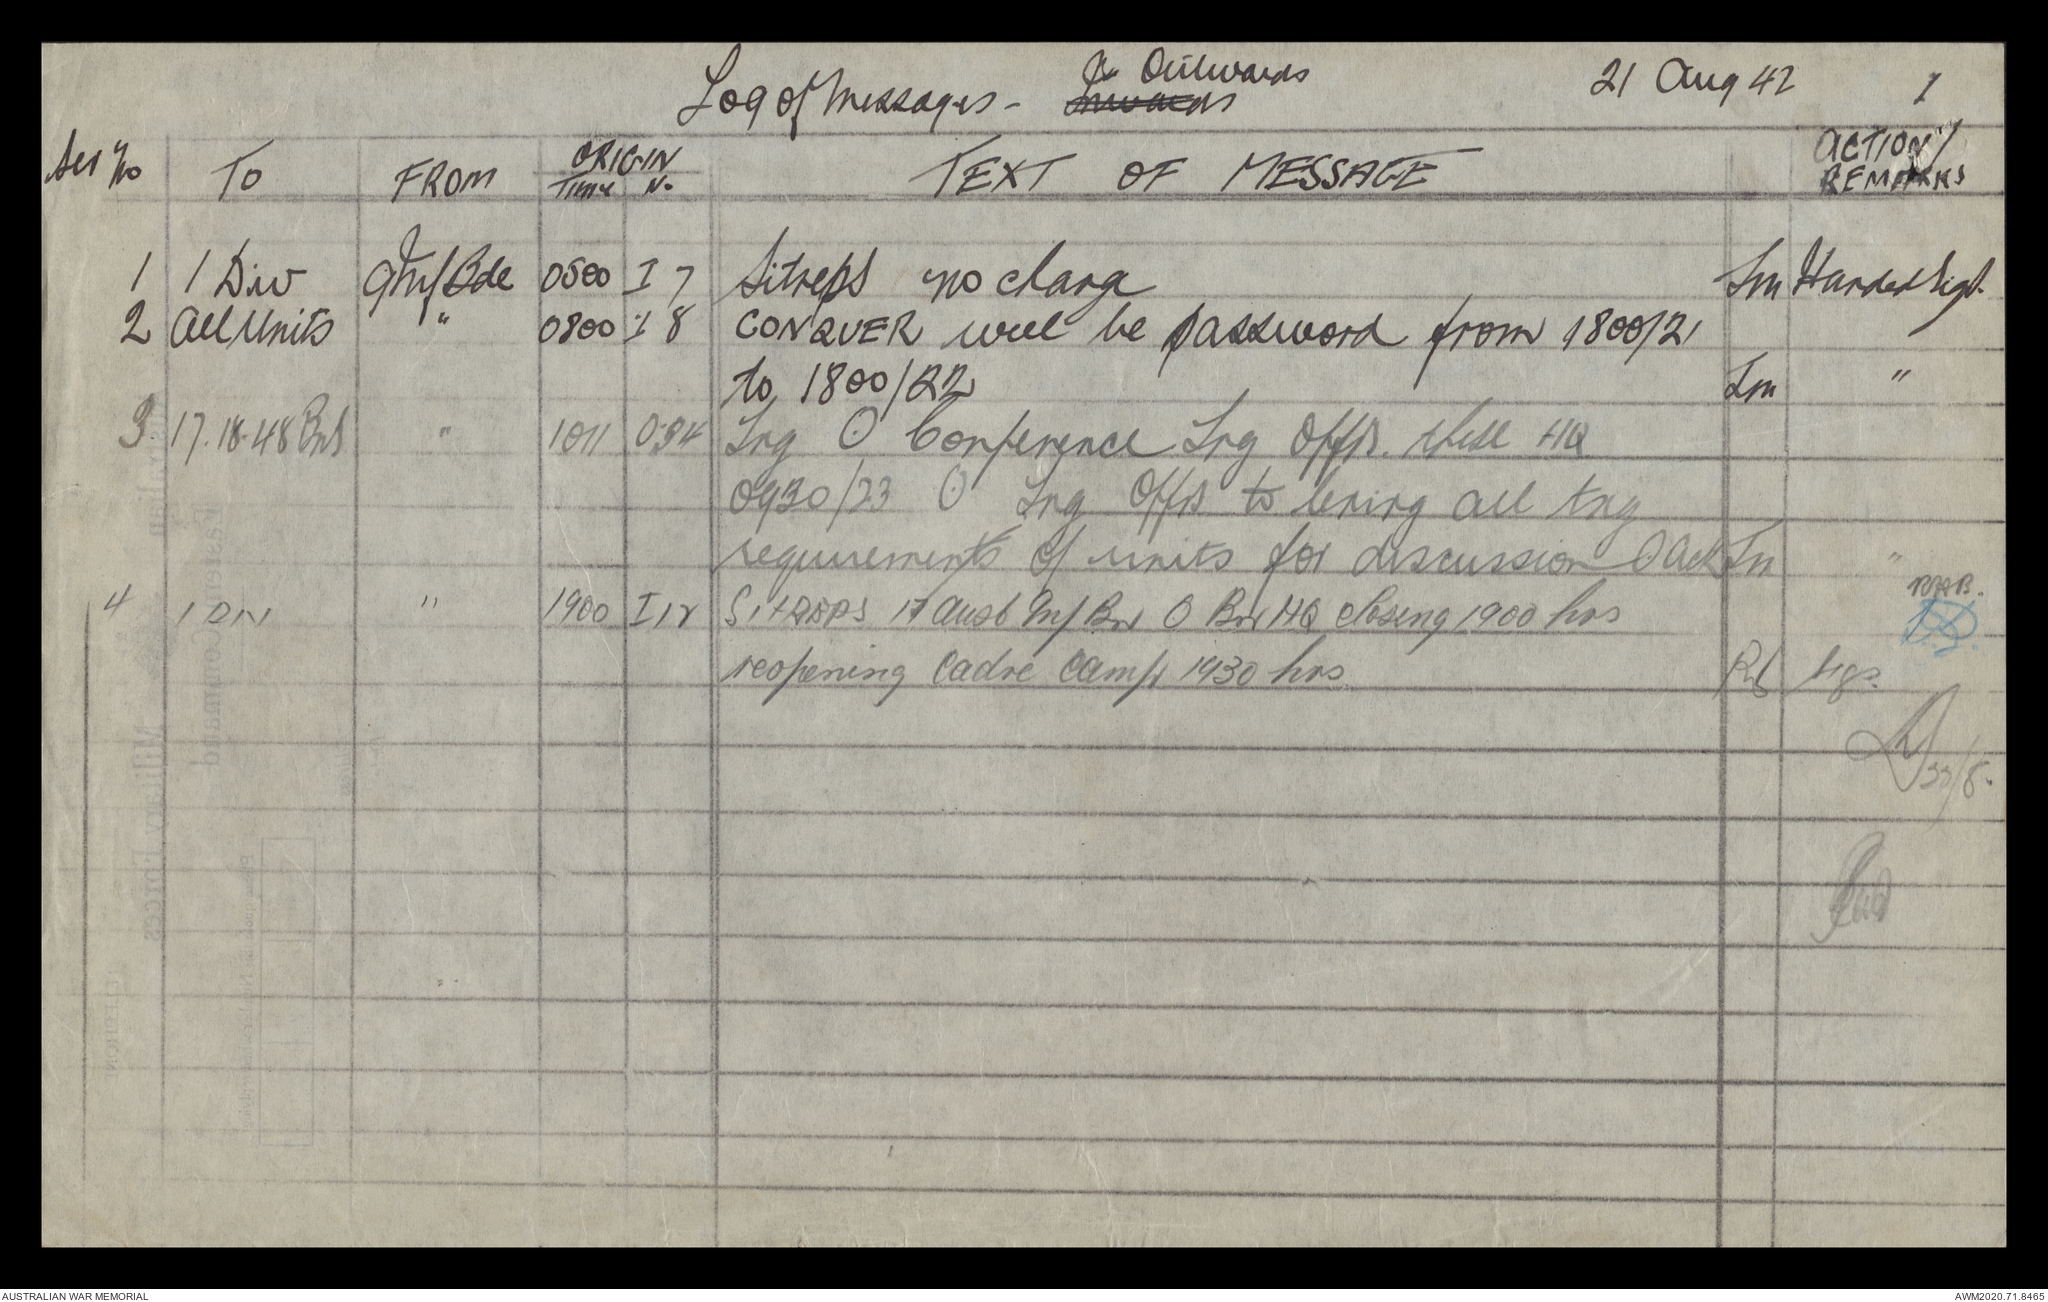 Log of Messages - Outwards
Inwards
21 Aug 42
1
Ser No TO FROM ORIGIN Time No TEXT OF MESSAGE ACTION / REMARKS
1 1 Div 9 Inf Bde 0500 I 7 Sitreps no change Lm Handed Sigs.
2 All Units " 0800 I 8 CONQUER will be password from 1800/21
to 1800/22 Lm "
3 17.18.48 Bns " 1011 O.34 Trg O Conference Trg Offrs. this HQ
0930/23 O Trg Offrs to bring all trg
requirements of units for discussion O Ack Lm "
4 1 DIV " 1900 I 12 SITREPS 17 Aust Inf Bn O Bn HQ closing 1900 hrs
reopening Cadre Camp 1930 hrs Sigs.
AUSTRALIAN WAR MEMORIAL
AWM2020.71.8465